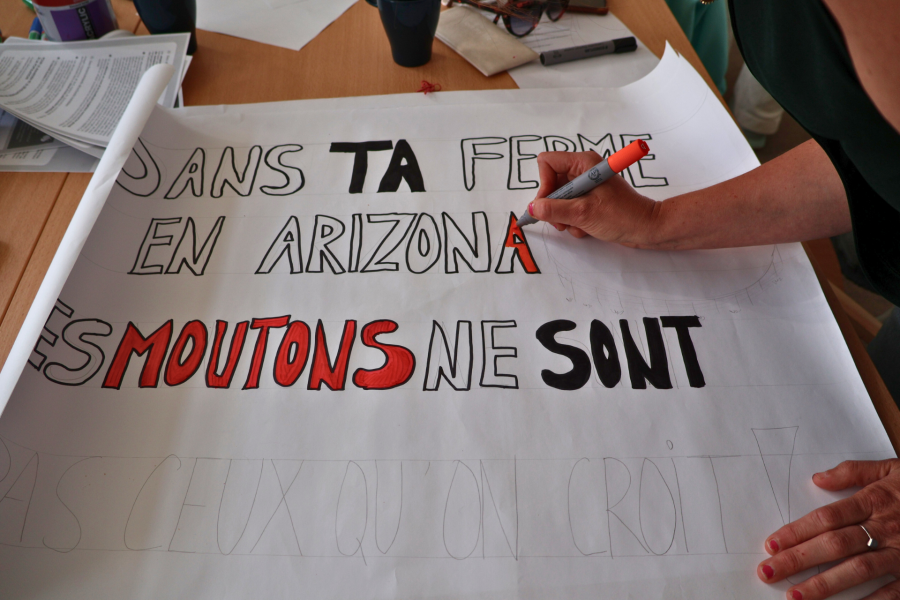 DANS TA FERME
EN ARIZONA
ES MOUTONS NE SONT
PAS CEUX QU'ON CROÎT !